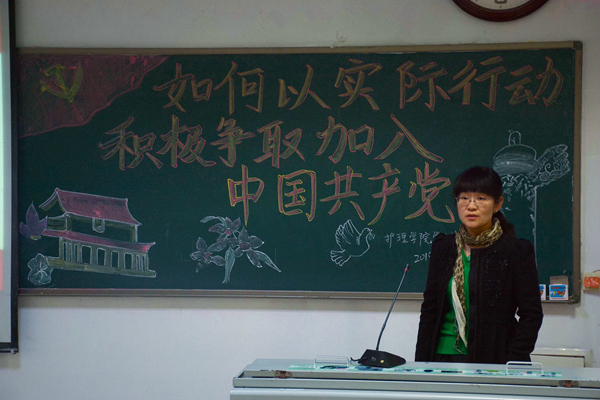 如何以实际行动
积极争取加入
中国共产党
护理学院
201